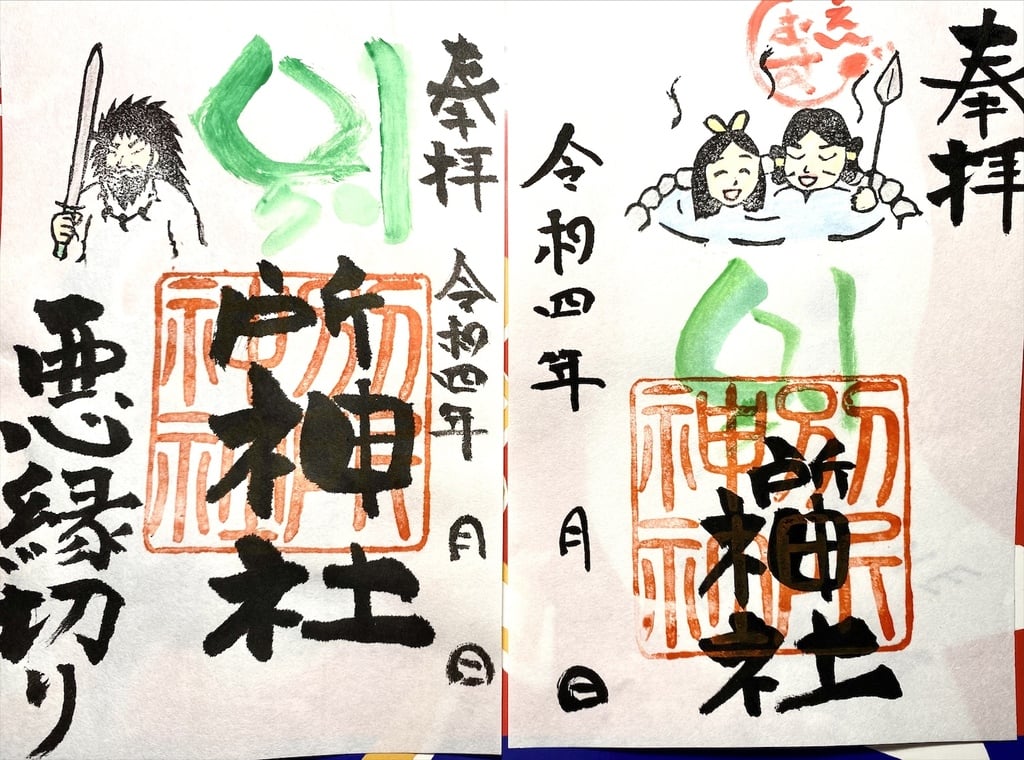 奉拝
別所神社
別所
神社
令和四年 月 日
奉拝
令和四年 月 日
別所神社
別所
神社
悪縁切り